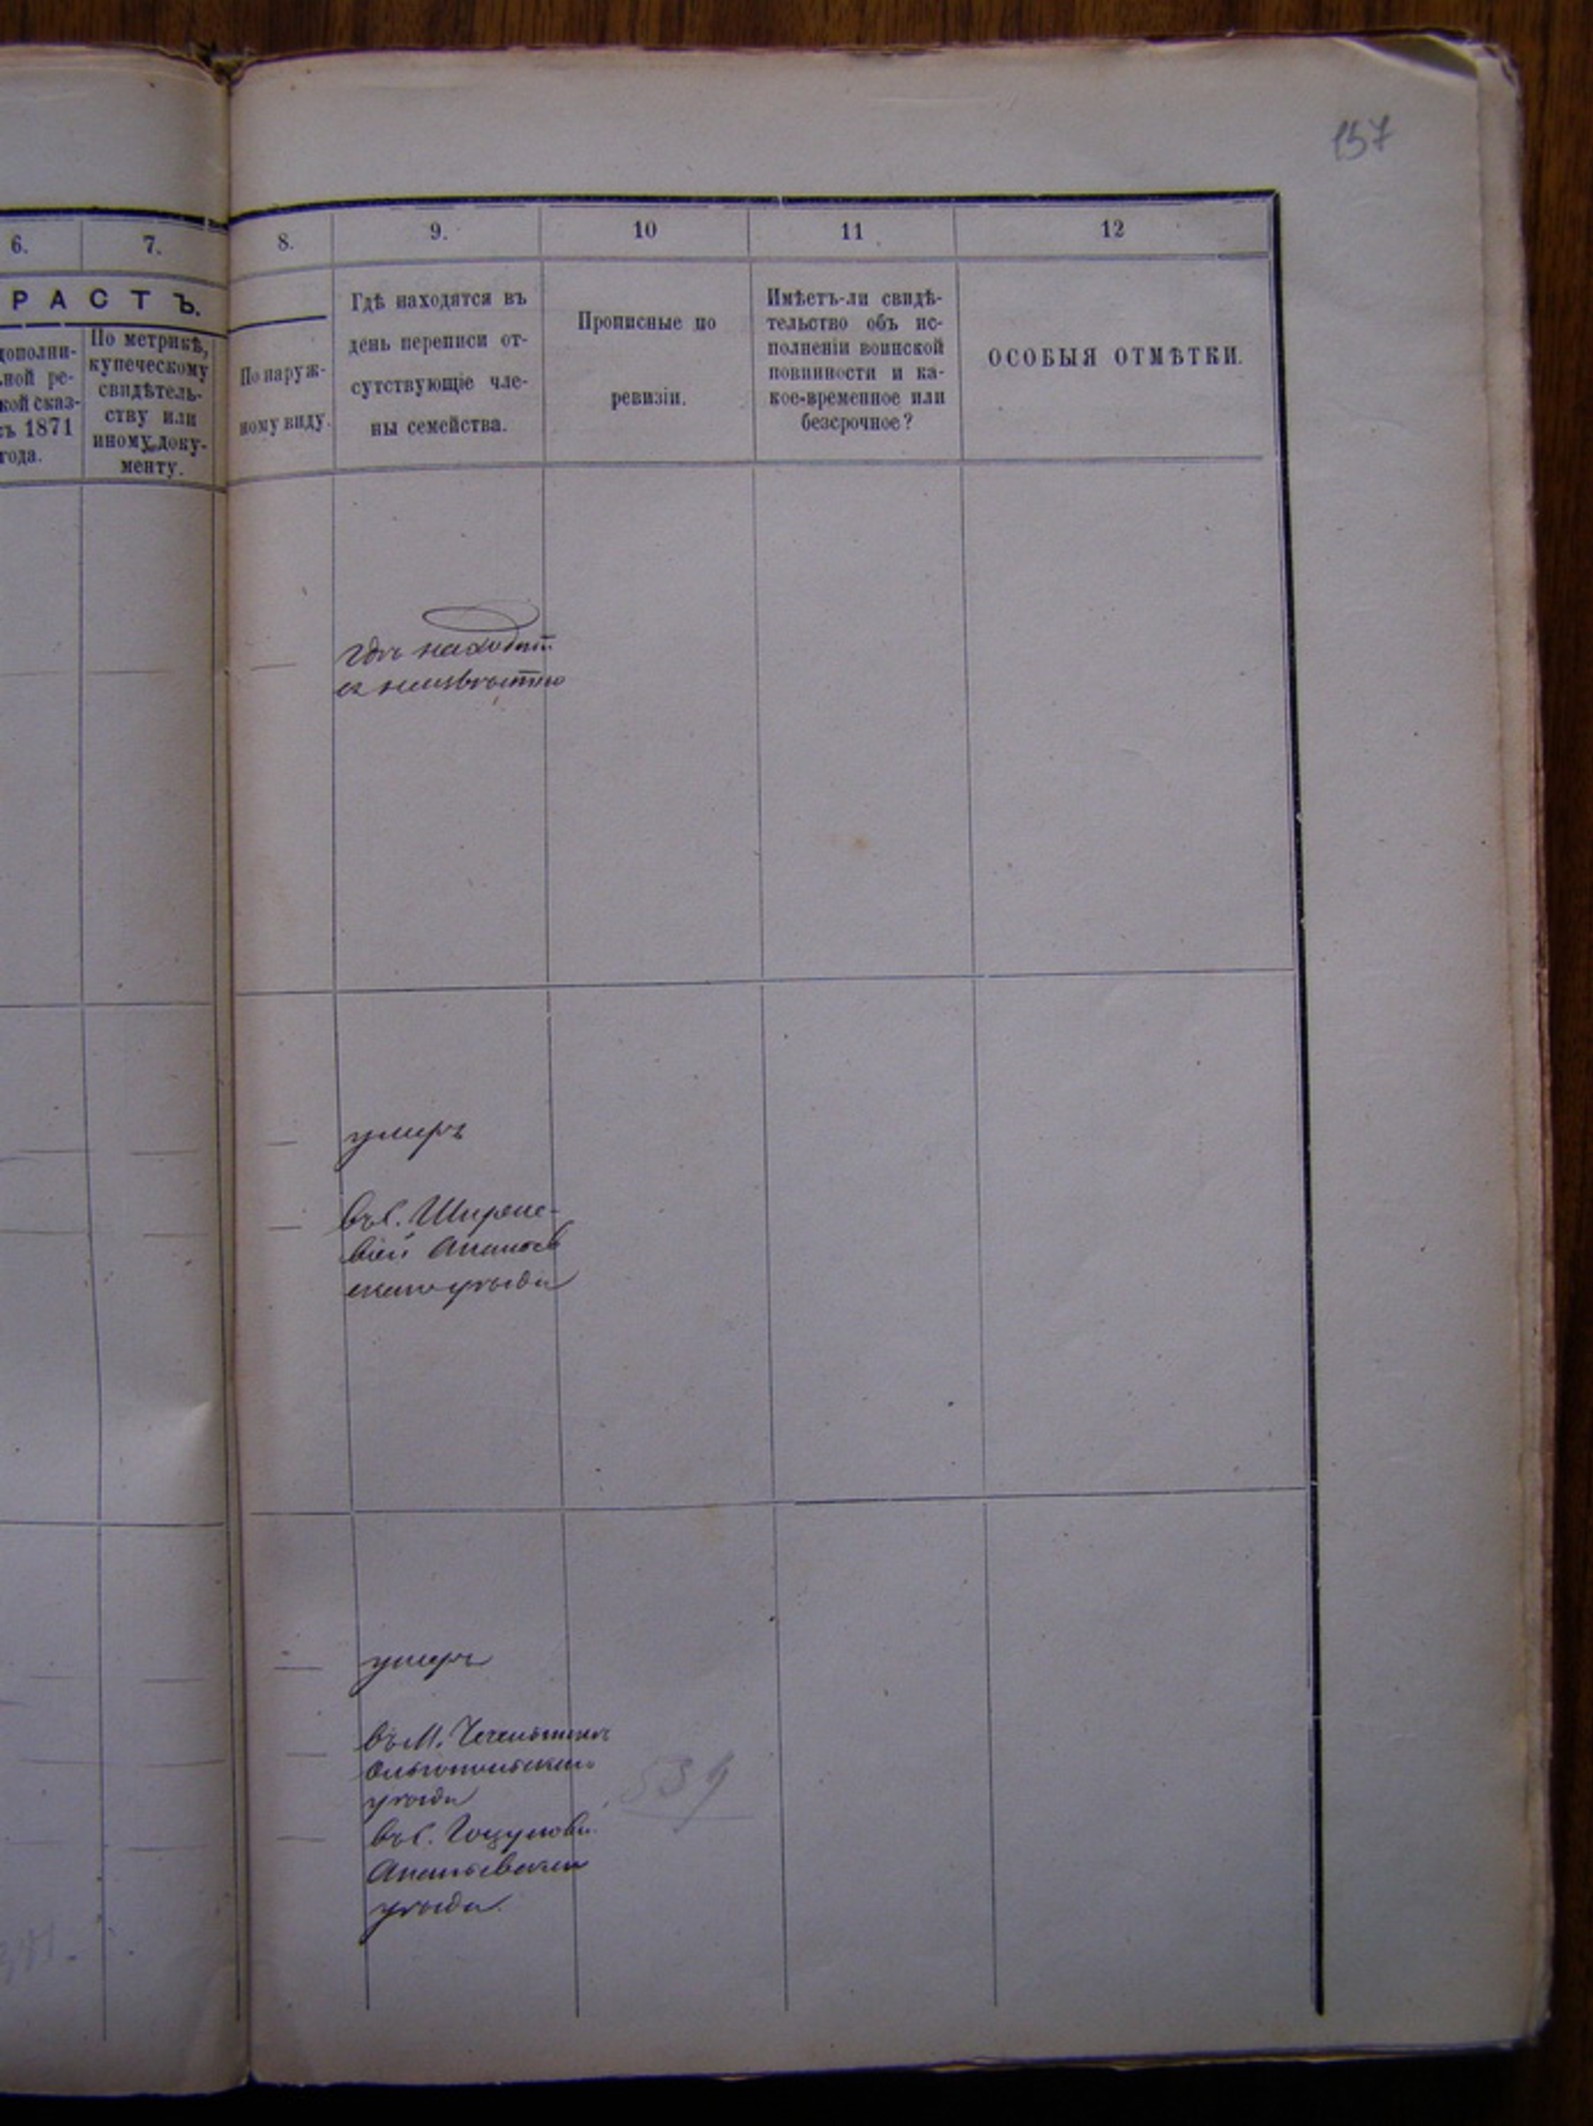 157
6. 7. 8. 9. 10 11 12
РАСТЪ.
дополни-
ной ре-
кой сказ-
съ 1871
года.
По метрикѣ,
купеческому
свидѣтель-
ству или
иному доку-
менту.
По наруж-
ному виду.
Гдѣ находятся въ
день переписи от-
сутствующіе чле-
ны семейства.
Прописные по
ревизіи.
Имѣетъ-ли свидѣ-
тельство объ ис-
полненіи воинской
повинности и ка-
кое-временное или
безсрочное?
ОСОБЫЯ ОТМѢТКИ.
гдѣ находит
ся неизвѣстно
умеръ
въ с. Ширяе-
Ананьев
скаго уѣзда
умеръ
въ м. Чечельникѣ
Ольгопольскаго
уѣзда
539
въ с.
Ананьевскаго
уѣзда.